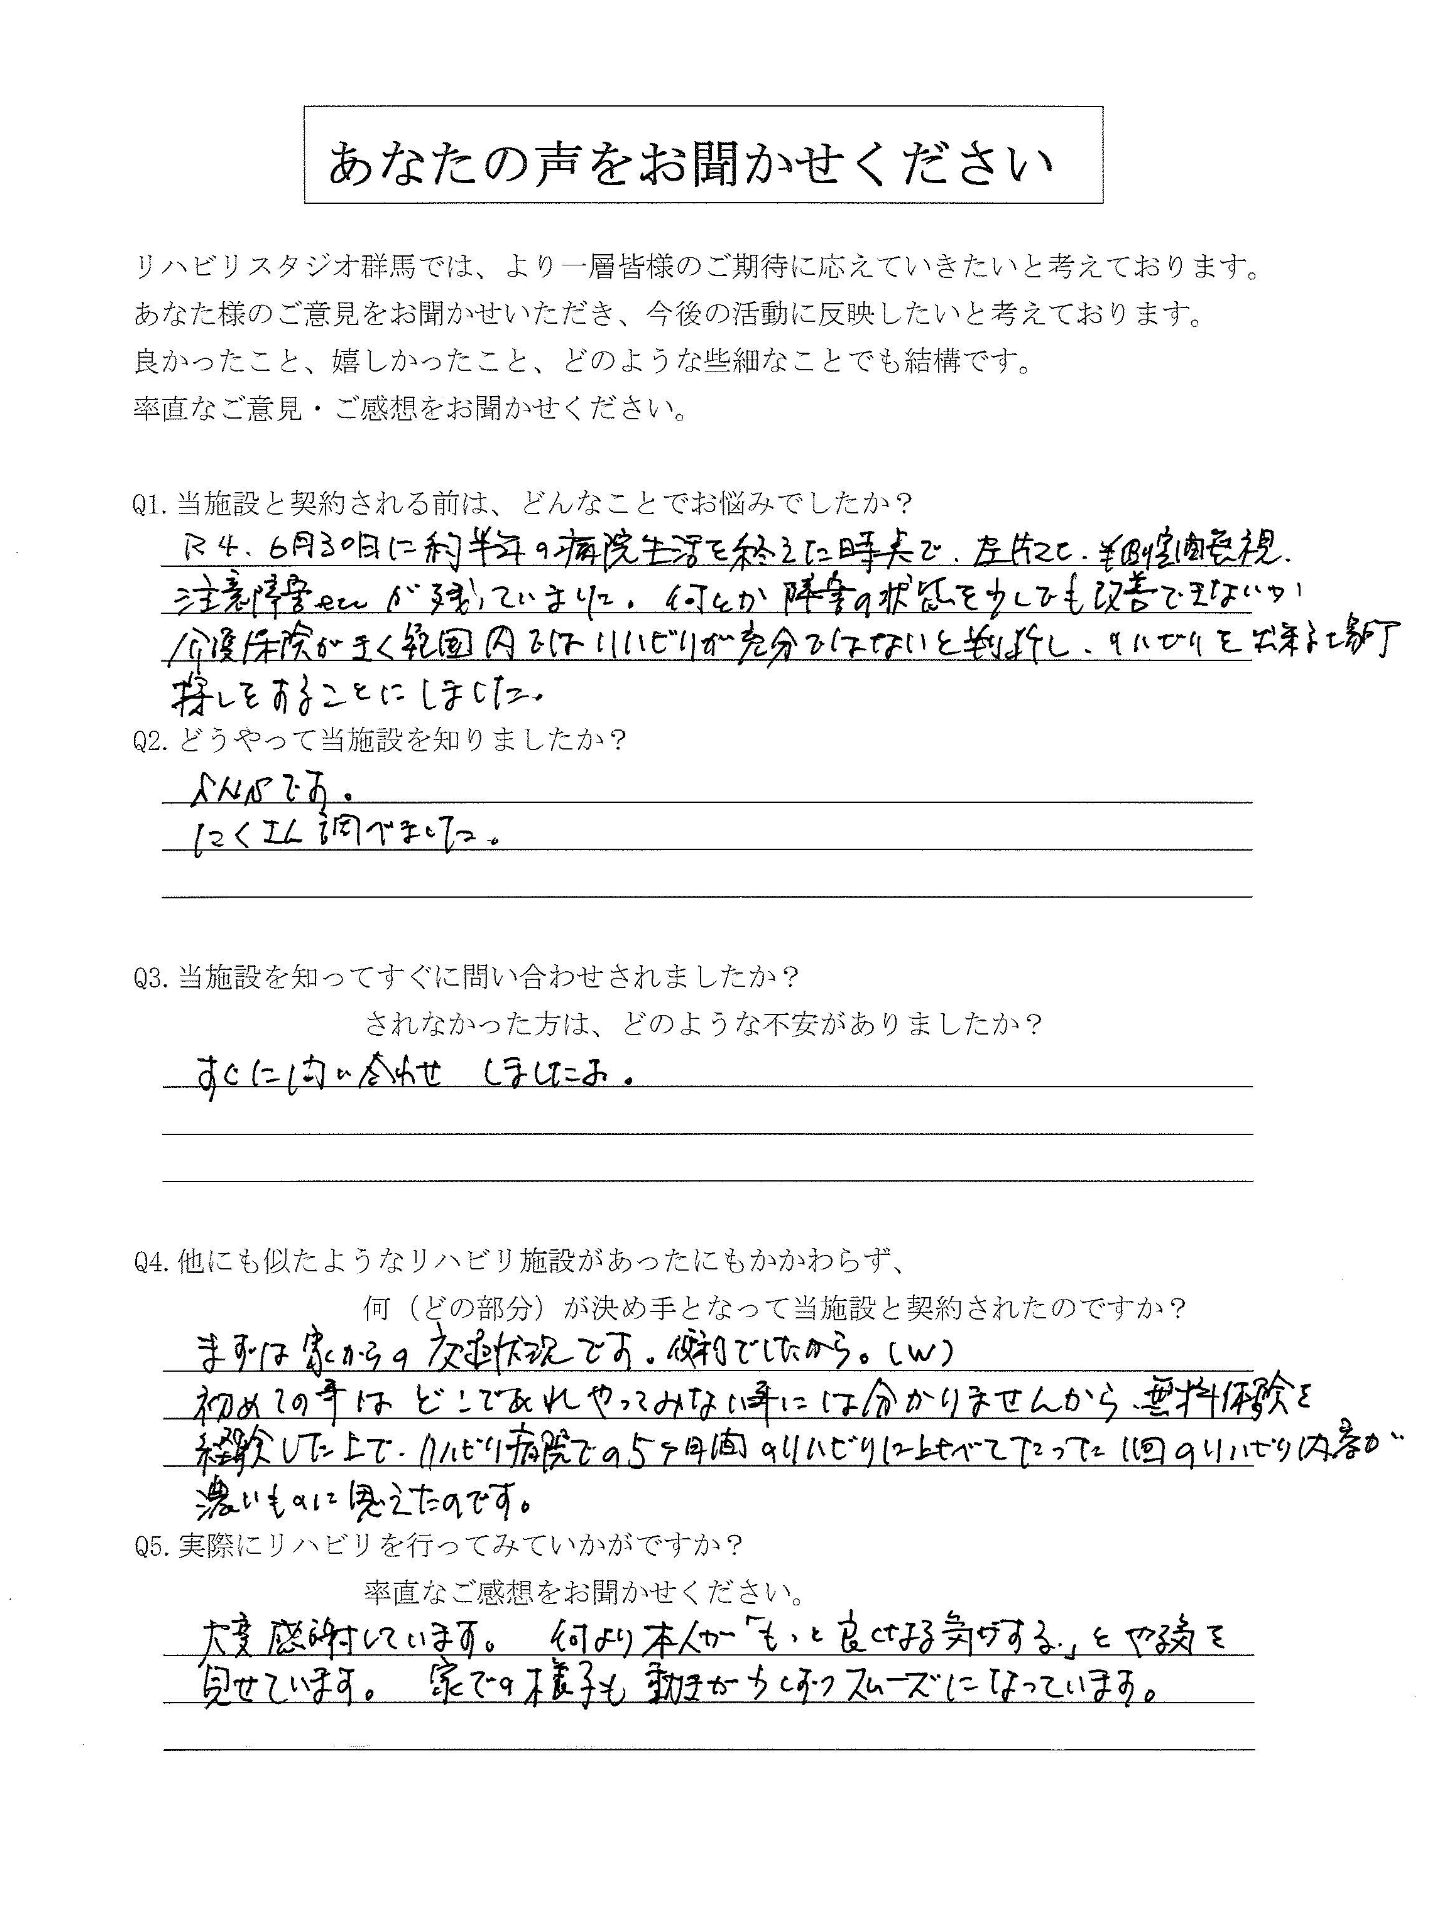 あなたの声をお聞かせください
リハビリスタジオ群馬では、より一層皆様のご期待に応えていきたいと考えております。
あなた様のご意見をお聞かせいただき、今後の活動に反映したいと考えております。
良かったこと、嬉しかったこと、どのような些細なことでも結構です。
率直なご意見・ご感想をお聞かせください。
Q1.当施設と契約される前は、どんなことでお悩みでしたか？
R4.6月30日に約半年の病院生活を終えた時点で、左片マヒ、半側空間無視、
注意障害etcが残っていました。何とか障害の状態を少しでも改善できないか
介護保険がきく範囲内ではリハビリが充分ではないと判断し、リハビリを出来る場所
探しをすることにしました。
Q2.どうやって当施設を知りましたか？
SNSです。
たくさん調べました。
Q3.当施設を知ってすぐに問い合わせされましたか？
されなかった方は、どのような不安がありましたか？
すぐに問い合わせ しましたよ。
Q4.他にも似たようなリハビリ施設があったにもかかわらず、
何（どの部分）が決め手となって当施設と契約されたのですか？
まずは家からの交通状況です。便利でしたから。(W)
初めての事はどこであれやってみない事には分かりませんから、無料体験を
経験した上で、リハビリ病院での5ヶ月間のリハビリに比べてたった1回のリハビリ内容が
濃いものに思えたのです。
Q5.実際にリハビリを行ってみていかがですか？
率直なご感想をお聞かせください。
大変感謝しています。 何より本人が「もっと良くなる気がする。」とやる気を
見せています。 家での様子も動きが少しずつスムーズになっています。